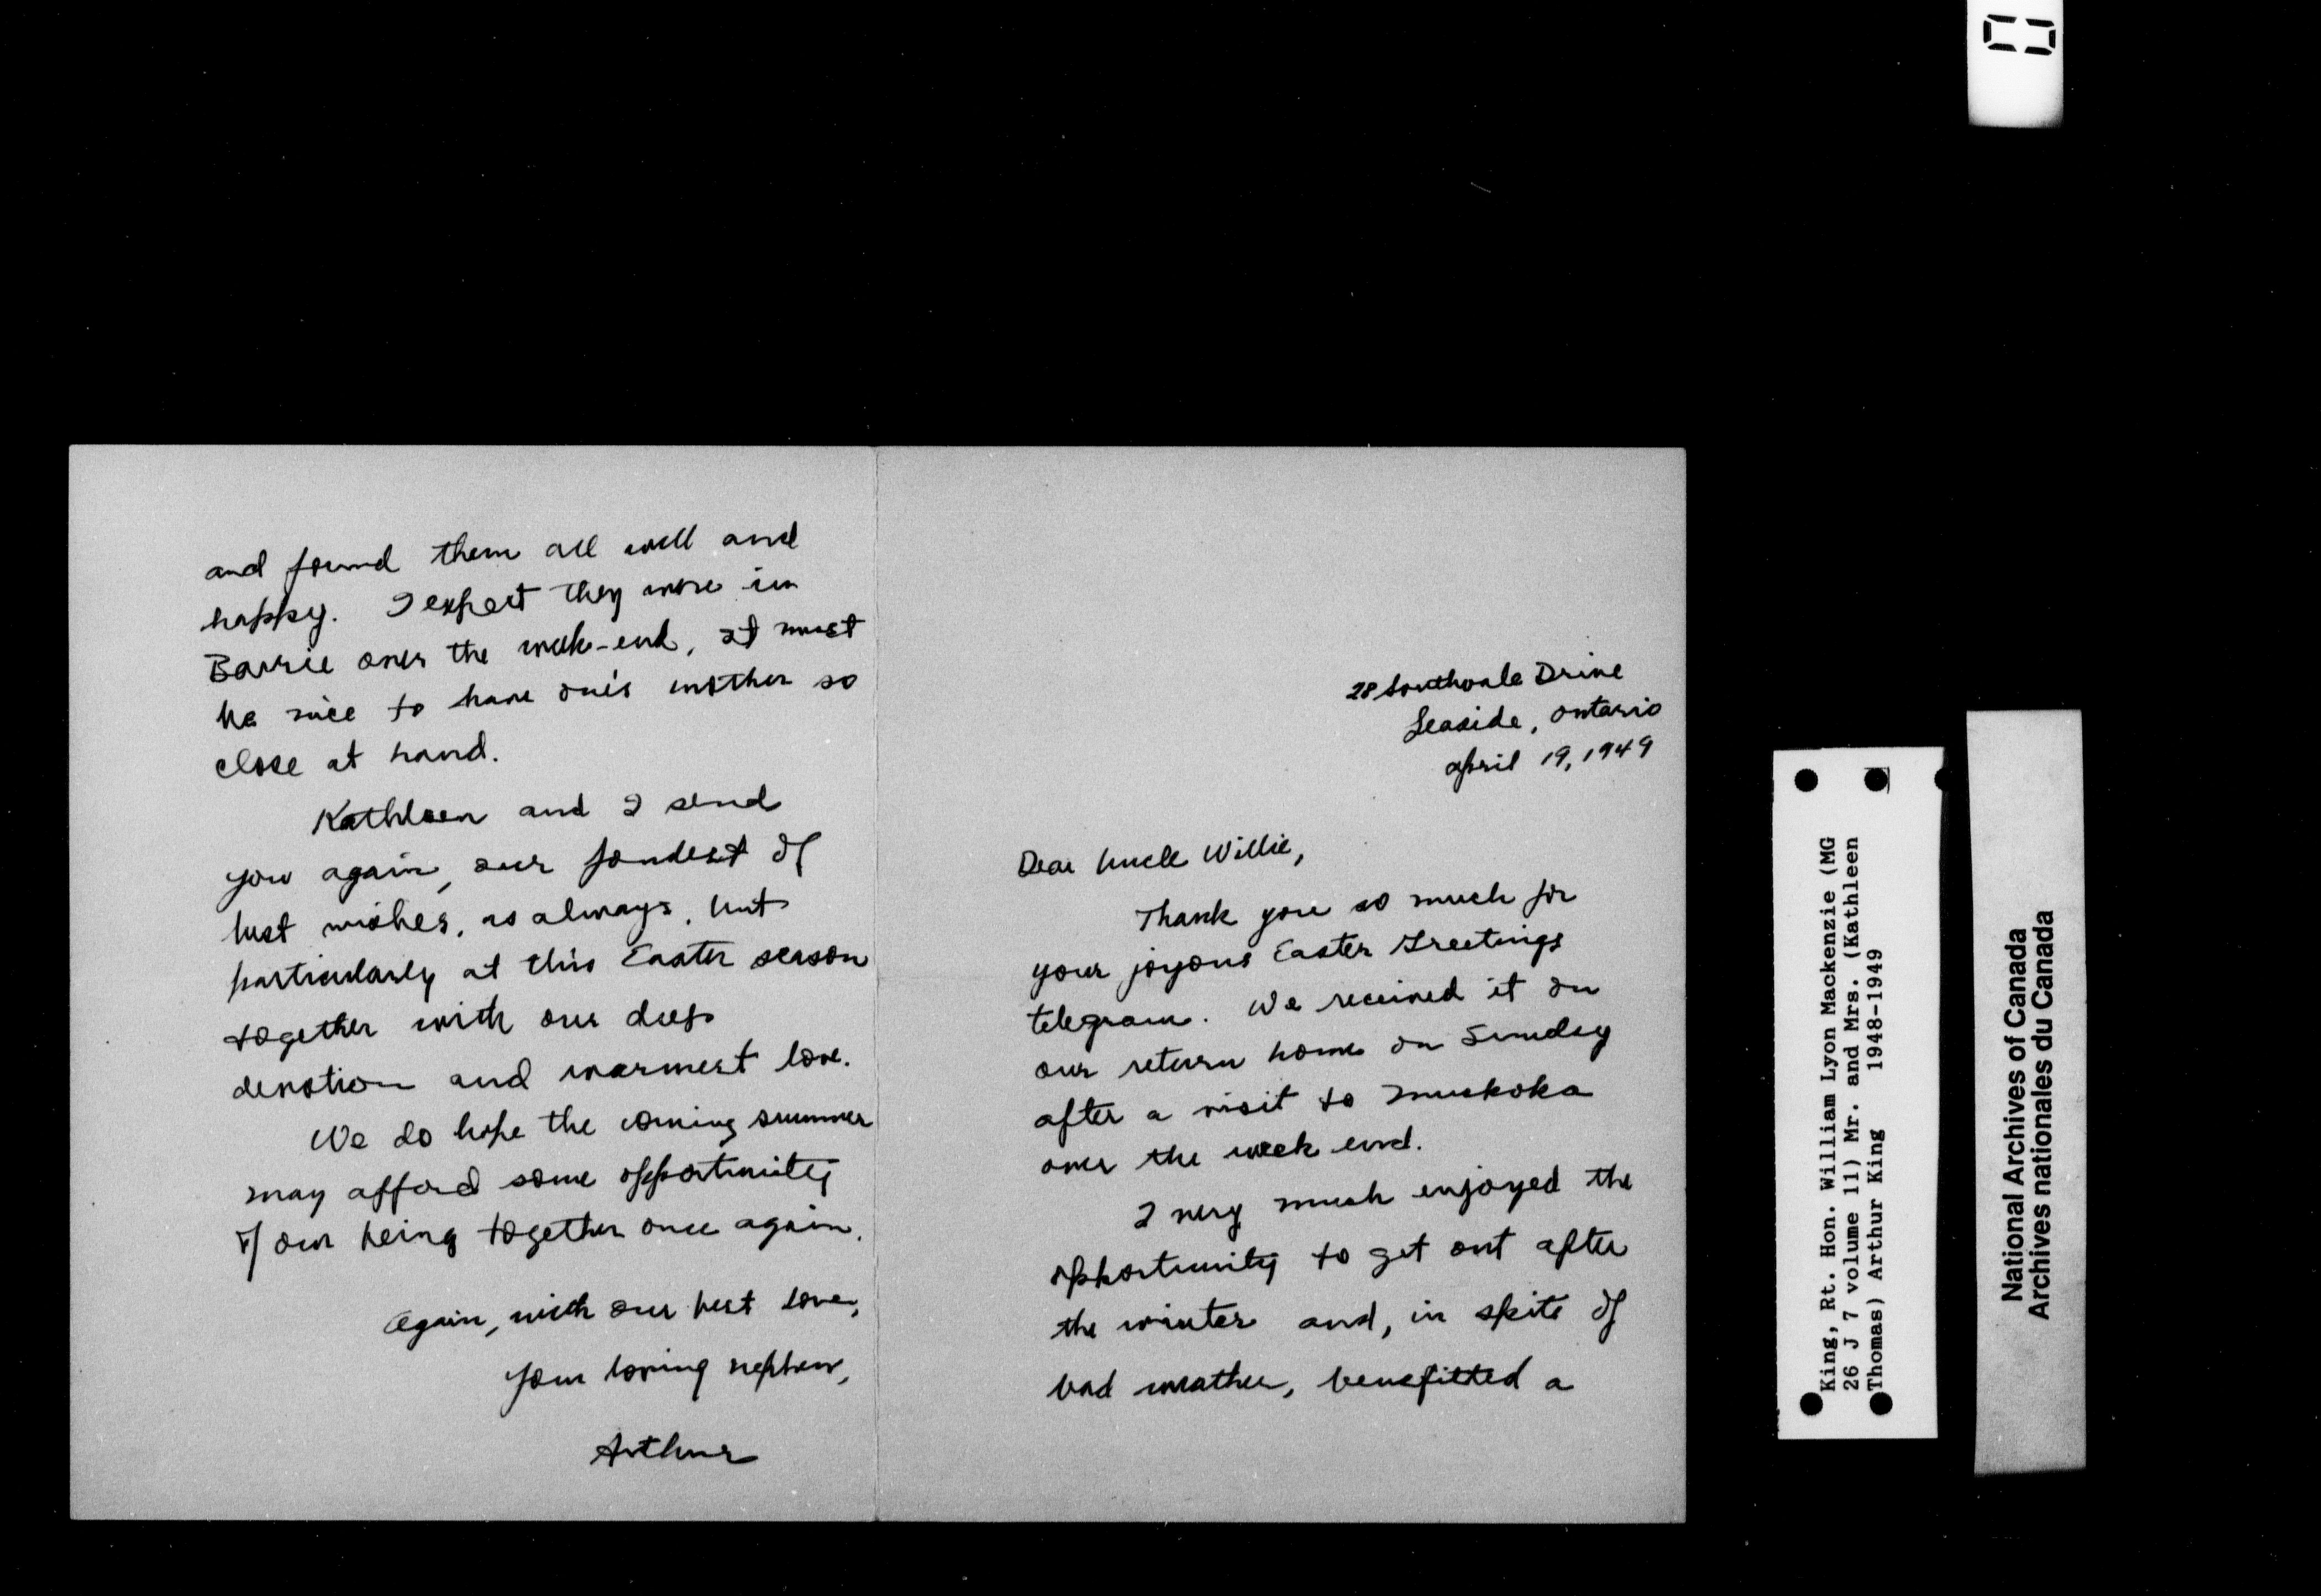 28 Southvale Drive
Leaside, Ontario
April 19, 1949
Dear Uncle Willie,
Thank you so much for
your joyous Easter Greetings
telegram. We received it on
our return home on Sunday
after a visit to Muskoka
over the week end.
I very much enjoyed the
opportunity to get out after
the winter and, in spite of
bad weather, benefitted a
and found them all well and
happy. I expect they were in
Barrie over the week-end, it must
be nice to have one's mother so
close at hand.
Kathleen and I send
you again, our fondest of
best wishes, as always, but
particularly at this Easter season
together with our deep
devotion and warmest love.
We do hope the coming summer
may afford some opportunity
of our being together once again.
Again, with our best love,
Your loving nephew,
Arthur
King, Rt. Hon. William Lyon Mackenzie (MG
26 J 7 volume 11) Mr. and Mrs. (Kathleen
Thomas) Arthur King 1948-1949
National Archives of Canada
Archives nationales du Canada